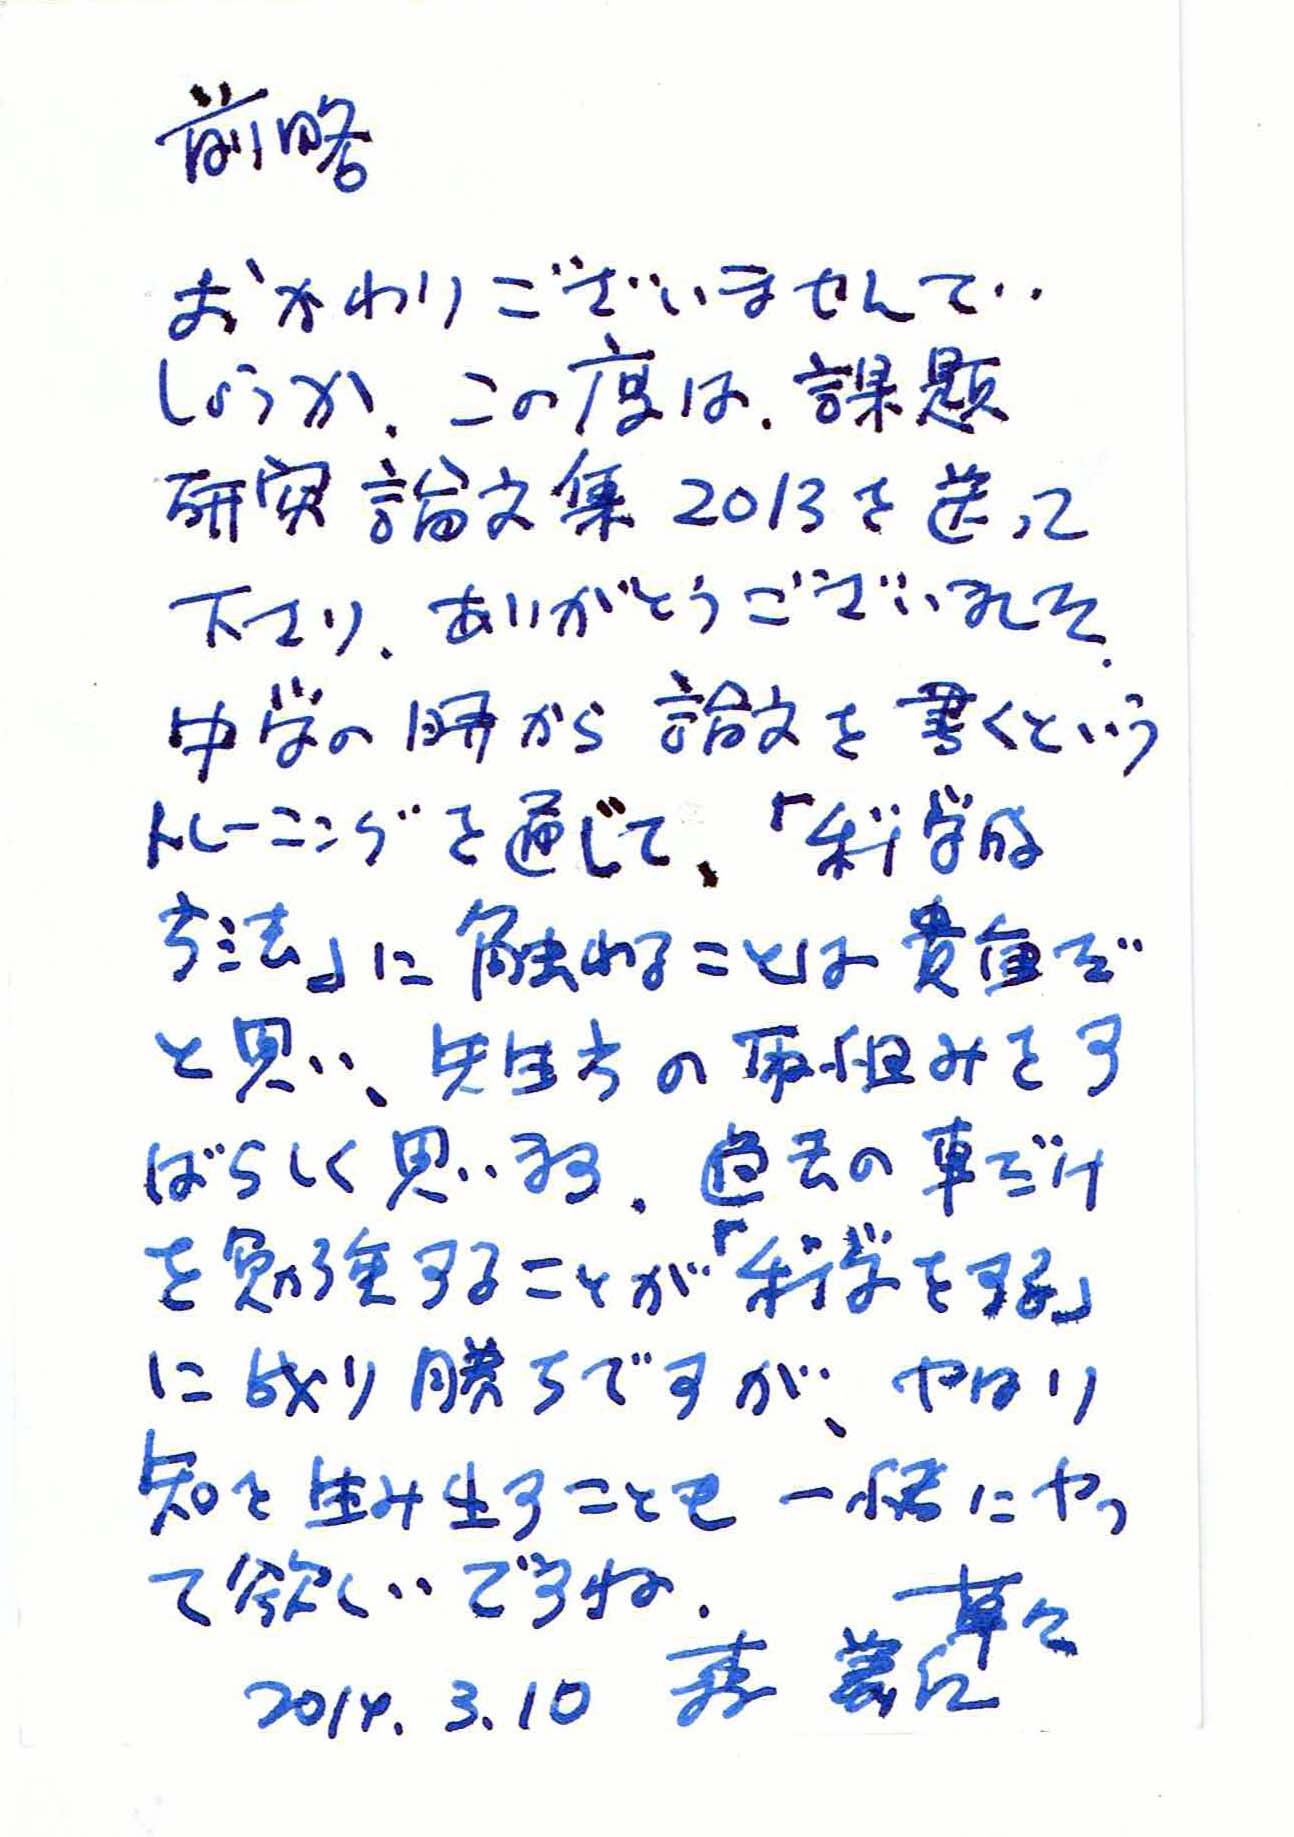 前略
おかわりございませんで
しょうか. この度は. 課題
研究論文集 2013を送って
下さり. ありがとうございました.
中学の時から 論文を書くという
トレーニングを通じて、「科学的
方法」に触れることは貴重だ
と思い、先生方の取組みをす
ばらしく思います. 過去の事だけ
を勉強することが「科学をする」
に成り勝ちですが、やはり
知を生み出すことも一緒にやっ
て欲しいですね.
草々
2014. 3. 10 森